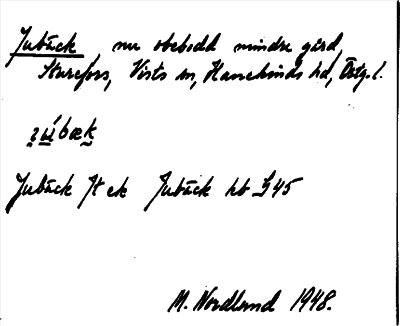 Jubäck, nu obebodd mindre gård,
Sturefors, Vists sn, Hanekinds hd, Östg. l.
ʒʉ́bæk
Jubäck Jt ek Jubäck hb 945
M. Nordlund 1948.